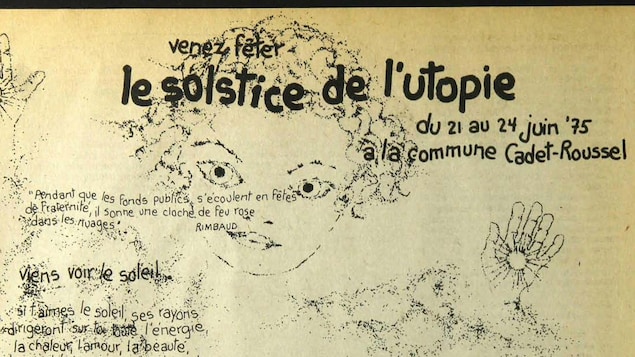 venez fêter
le solstice de l'utopie
du 21 au 24 juin '75
a la commune Cadet-Roussel
"Pendant que les fonds publics s'écoulent en Fêtes
de Fraternité, il sonne une cloche de feu rose
dans les nuages"
RIMBAUD
viens voir le soleil...
si t'aimes le soleil, ses rayons
dirigeront sur la l'énergie,
la chaleur, l'amour, la beauté,